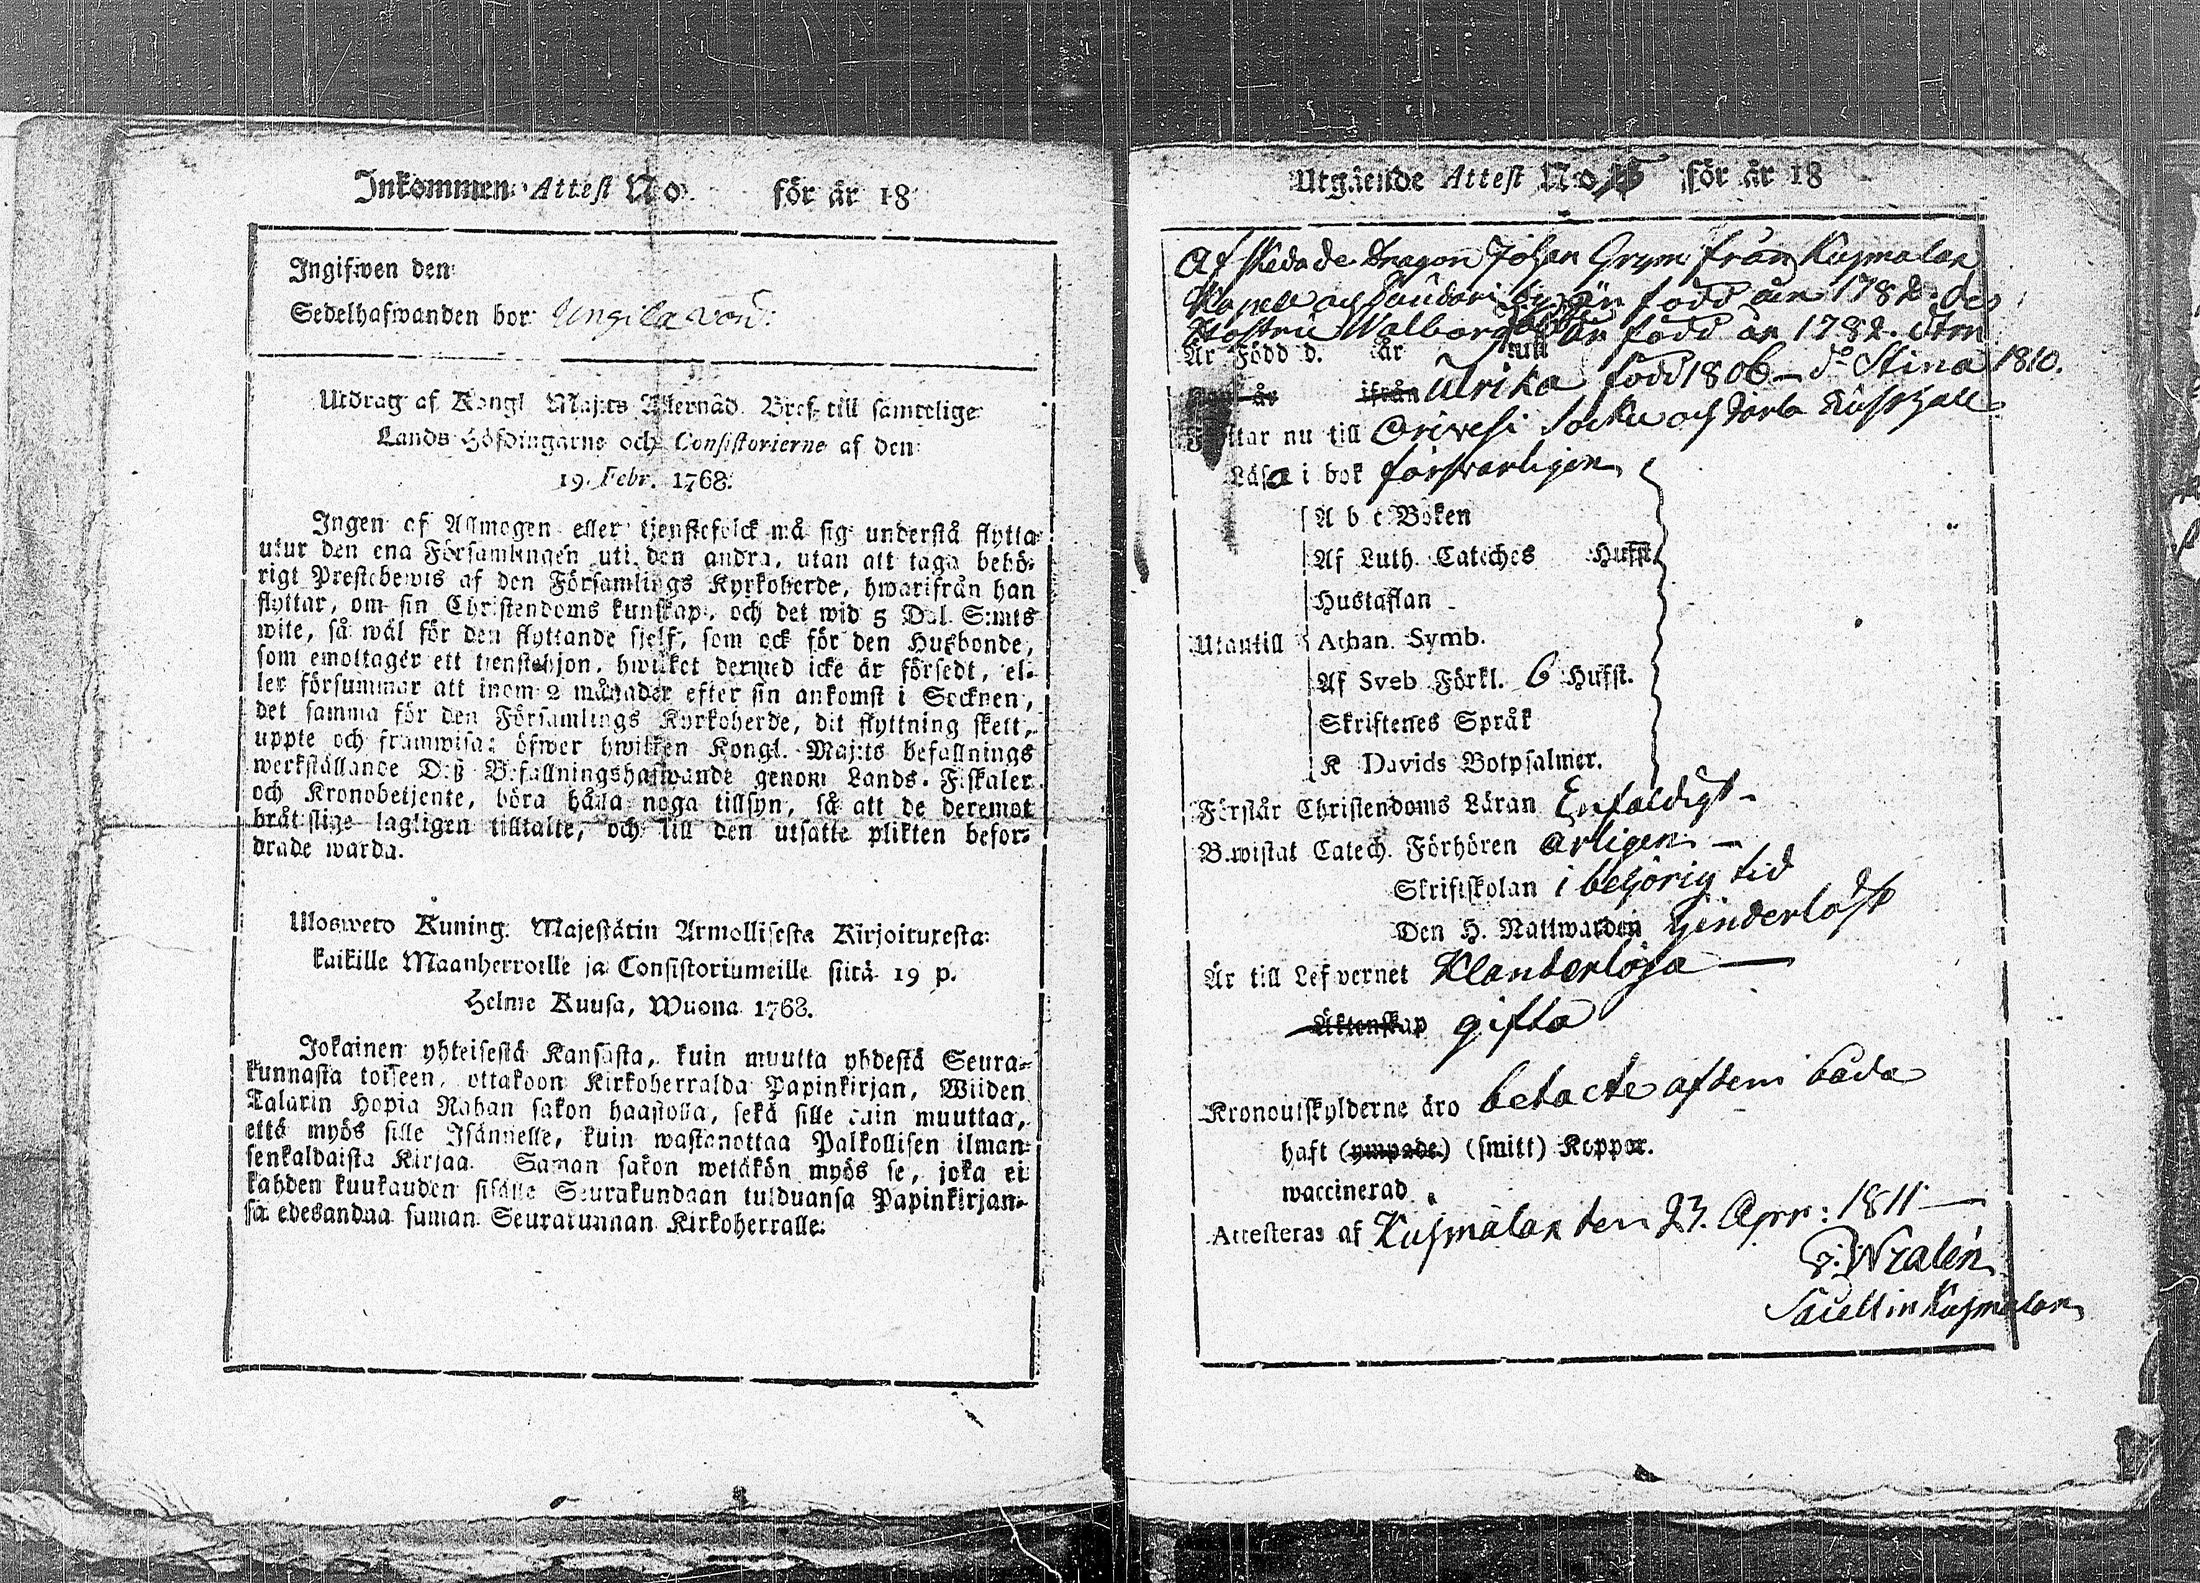 Inkommen Attest No. för år 18
Ingifwen den
Sedelhafwanden bor
Utdrag af Kongl Maj:ts Allernåd. Bref till samtelige
Lands Höfdingarne och Consistorierne af den
19. Febr. 1768.
Ingen af Allmogen eller tjenstefolck må sig understå flytta
utur den ena Församlingen uti den andra, utan att taga behö-
rigt Prestebewis af den Församlings Kyrkoherde, hwarifrån han
flyttar, om sin Christendoms kunskap, och det wid 5 Dal. S:mts
wite, så wäl för den flyttande sjelf, som ock för den Husbonde,
som emottager ett tienstehjon, hwilket dermed icke är försedt, el-
ler försummar att inom 2 månader efter sin ankomst i Socknen,
det samma för den Församlings Kyrkoherde, dit flyttning skett,
uppte och framwisa; öfwer hwilken Kongl. Maj:ts befallnings
werkställande Deß Befallningshafwande genom Lands-Fiskaler
och Kronobetjente, böra hålla noga tillsyn, så att de deremot
bråtslige lagligen tilltalte, och till den utsatte plikten befor-
drade warda.
Uloswero Kuning. Majestätin Armollisesta Kirjoituxesta
kaikille Maanherroille ja Consistoriumeille siitä 19 p.
Helme Kuusa, Wuona 1768.
Jokainen yhteisestä Kansasta, kuin muutta yhdestä Seura-
kunnasta toiseen, ottakoon Kirkoherralda Papinkirjan, Wiiden
Talarin Hopia Rahan sakon haastolla, sekä sille cuin muuttaa,
että myös sille Isännelle, kuin wastanottaa Palkollisen ilman
senkaldaista Kirjaa. Saman sakon wetäkön myös se, joka ei
kahden kuukauden sisälle Seurakundaan tulduansa Papinkirjan-
sa edesandaa saman Seurakunnan Kirkoherralle.
Utgående Attest No för år 18
Afskedade Dragon Johan Grym från Kusmalax
Kapell och by är född år 1782. des
Hustru Walborg är född år 1782. dttrn
Är Född d. år
Ulrika född 1806 – do Stina 1810.
Flyttar nu till Orivesi Sockn och
Läsa i bok försvarligen
A b c Boken
Af Luth. Cateches Hufst.
Hustaflan
Utantill Athan. Symb.
Af Sveb Förkl. 6 Hufst.
Skriftenes Språk
K Davids Botpsalmer.
Förstår Christendoms Läran Enfaldigt –
Bewistat Catech. Förhören årligen –
Skriftskolan i behörig tid
Den H. Nattwarden hinderlöst
Är till Lefvernet Klanderlösa –
Äktenskap gifta
Kronoutskylderne äro betacte af dem båda
haft (ympade) (smitt) Koppor.
waccinerad
Attesteras af Kusmalax den 23. Apr: 1811 –
Sacell in Kusmalax